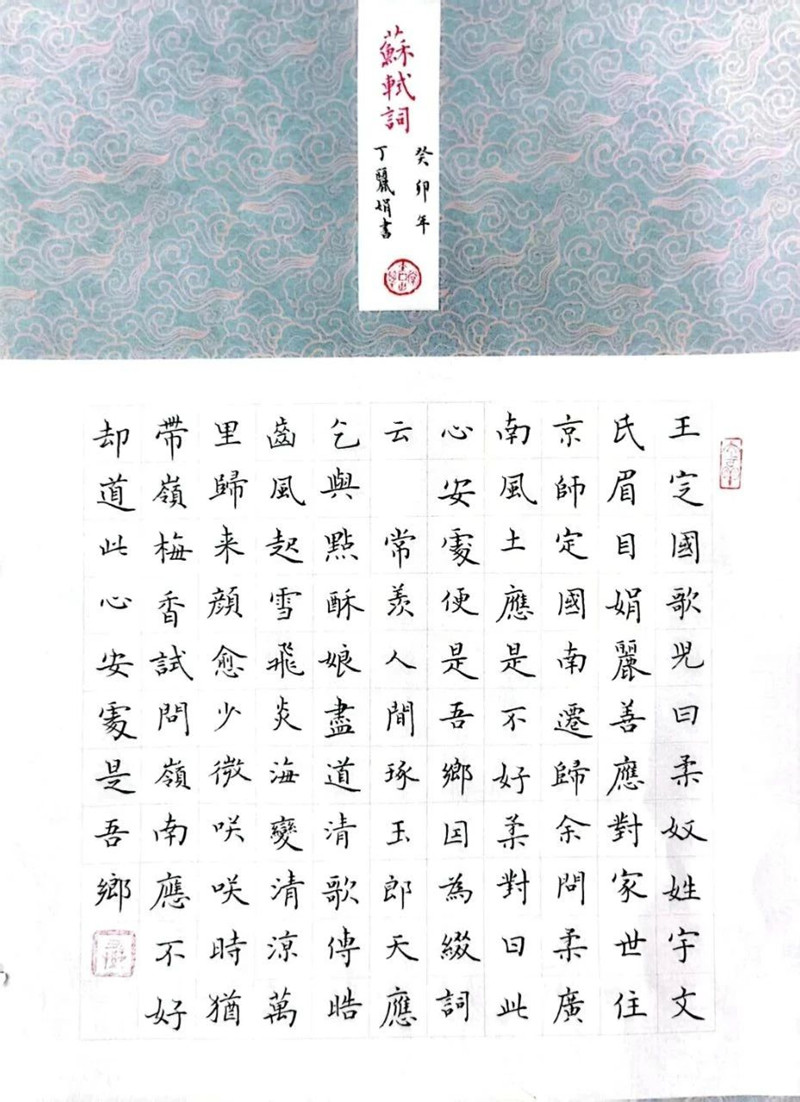 蘇軾詞
癸卯年
丁麗娟書
王定國歌児曰柔奴姓宇文
氏眉目娟麗善應對家世住
京師定國南遷歸余問柔廣
南風土應是不好柔對曰此
心安處便是吾鄉因為綴詞
云 常羨人間琢玉郎天應
乞與點酥娘盡道清歌傳皓
齒風起雪飛炎海變清涼萬
里歸来顔愈少微咲咲時猶
帶嶺梅香試問嶺南應不好
却道此心安處是吾鄉